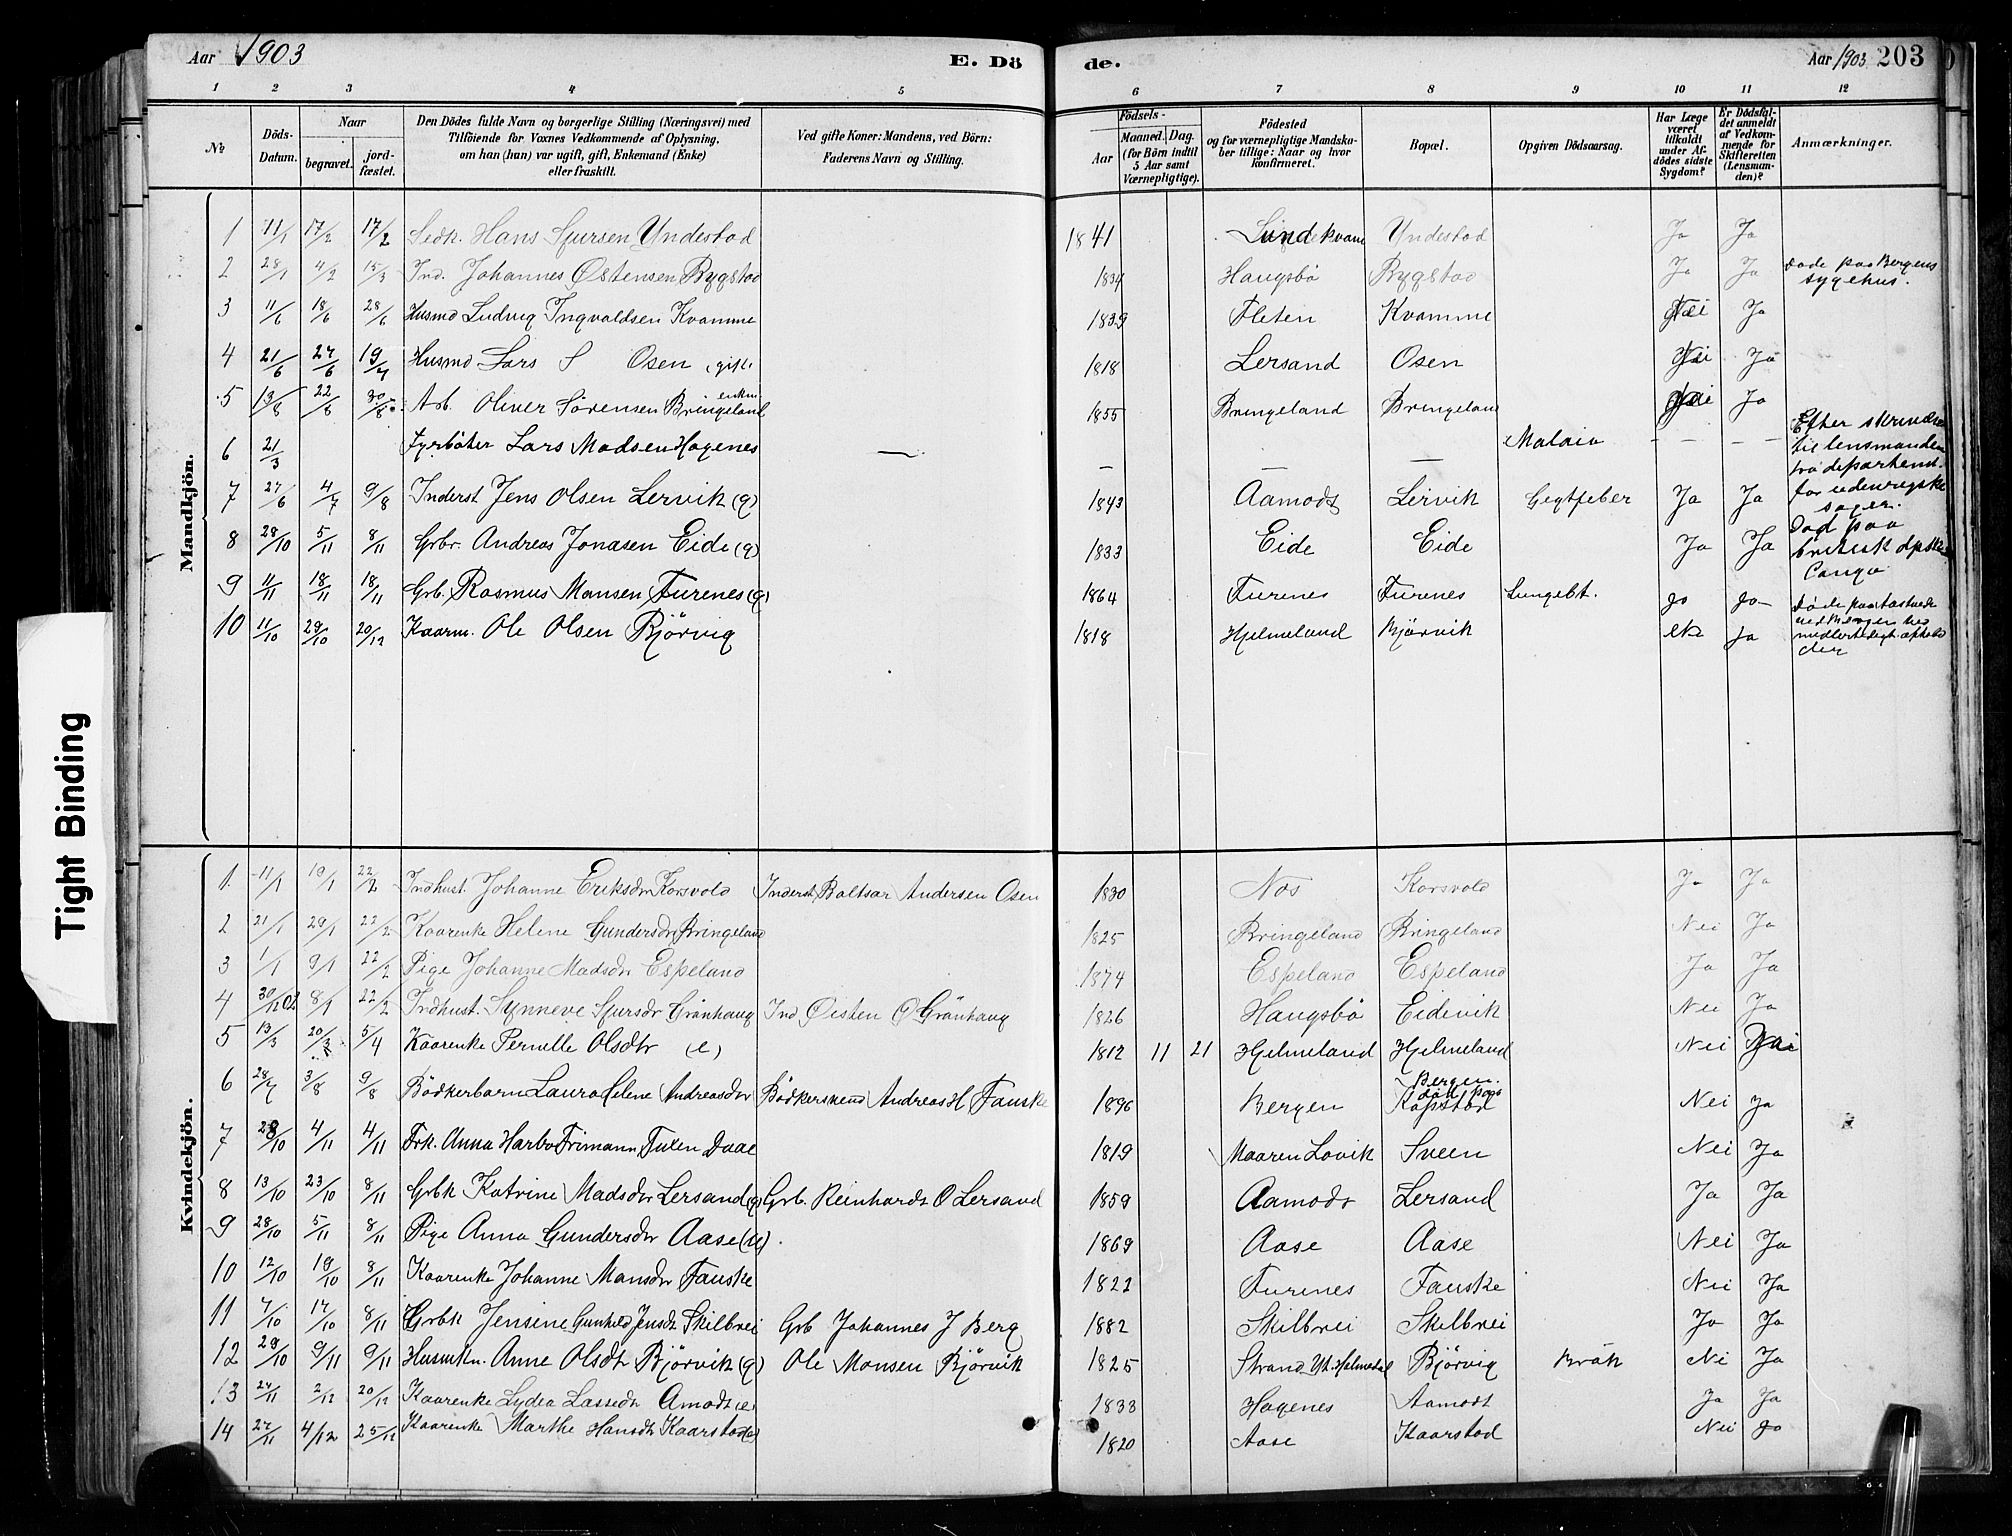 Aar 1903 E. Dö de. Aar 1903 203
1 2 3 4 5 6 7 8 9 10 11 12
№
Döds-Datum.
Naar
begravet.
jord-fæstet.
Den Dödes fulde Navn og borgerlige Stilling (Næringsvei) med
Tilföiende for Voxnes Vedkommende af Oplysning,
om han (hun) var ugift, gift, Enkemand (Enke)
eller fraskilt.
Ved gifte Koner: Mandens, ved Börn:
Faderens Navn og Stilling.
Födsels-
Aar
Maaned. Dag.
(for Börn indtil
5 Aar samt
Værnepligtige).
Födested
og for værnepligtige Mandska-
ber tillige: Naar og hvor
konfirmeret.
Bopæl.
Opgiven Dödsaarsag.
Har Læge
været
tilkaldt
under Af-
dödes sidste
Sygdom?
Er Dödsfal-
det anmeldt
af Vedkom-
mende for
Skifteretten
(Lensman-
den)?
Anmærkninger.
Mandkjön.
1 11/1 17/2 17/2 Sedk. Hans Sjursen Yndestad 1841 Lundekvam Yndestad Ja Ja
2 28/1 4/2 15/3 Ind. Johannes Østensen Bygstad 1834 Haugsbö Bygstad Ja Ja Döde paa Bergens sygehus.
3 11/6 18/6 28/6 Husmd Ludvig Ingvaldsen Kvamme 1839 Fleten Kvamme Nei Ja
4 21/6 27/6 19/7 Husmd Lars S Osen (gift. 1818 Lersand Osen Nei Ja
5 13/8 22/8 30/8 Arb. Oliver Sörensen Bringeland enkm. 1855 Bringeland Bringeland Nei Ja
6 21/3 Fyrböter Lars Madsen Hagenes — — — — Malaia — — — Efter skrivelse til lensmanden fra departemt. for udenrigske sager. Död paa britisk dpsk Congo
7 27/6 4/7 9/8 Inderst Jens Olsen Lervik (g) 1843 Aamodt Lervik Gigtfeber Ja Ja
8 28/10 5/11 8/11 Grbr. Andreas Jonasen Eide (g) 1833 Eide Eide Ja Ja
9 11/11 18/11 18/11 Grb. Rasmus Monsen Furenes (g) 1864 Furenes Furenes Lungebt. Ja Ja
10 11/10 29/10 20/12 Kaarm. Ole Olsen Bjørvig 1818 Hjelmeland Bjørvik Ja Döde paa ved Bergen ved midlertidigt ophold der
Kvindekjön.
1 11/1 19/1 22/2 Indhust. Johanne Eriksdtr Korsvold Inderst Baltsar Andersen Osen 1830 Nos Korsvold Ja Ja
2 21/1 29/1 22/2 Kaarenke Helene Gundersdtr Bringeland 1825 Bringeland Bringeland Nei Ja
3 1/1 9/1 22/2 Pige Johanne Madsdtr Espeland 1874 Espeland Espeland Ja Ja
4 30/12 02 8/1 22/2 Indhust. Synneve Sjursdtr Grönhaug Ind Øisten O Grönhaug 1826 Haugsbö Eidevik Nei Ja
5 13/3 20/3 5/4 Kaarenke Pernille Olsdtr (e) 1812 11 21 Hjelmeland Hjelmeland Nei Nei
6 28/7 3/8 9/8 Bödkerbarn Laura Helene Andreasdtr Bödkersvend Andreas H Fauske 1896 Bergen Bergen. död paa Kapstad Nei Ja
7 28/10 4/11 4/11 Frk. Anna Harbo Frimann Tuxen Daae 1819 Maaren Lavik Sveen Nei Ja
8 13/10 23/10 8/11 Grbk Katrine Madsdtr Lersand (g) Grb. Reinhardt O Lersand 1859 Aamodt Lersand Ja Ja
9 28/10 5/11 8/11 Pige Anna Gundersdtr Aase (u). 1869 Aase Aase Nei Ja
10 12/10 19/10 8/11 Kaarenke Johanne Monsdtr Fauske 1822 Furenes Fauske Nei Ja
11 7/10 17/10 8/11 Grbk Jensine Gunhild Jensdt Skilbrei Grb Johannes J Berg 1882 Skilbrei Skilbrei Ja Ja
12 29/10 9/11 9/11 Husmkn. Anne Olsdtr Bjørvik (g) Ole Monsen Bjørvik 1825 Strand Yt. Holmedal Bjørvig Kræft Nei Ja
13 24/11 2/12 20/12 Kaarenke Lydia Lassedt Amodt (e) 1838 Hagenes Aamodt Ja Ja
14 27/11 4/12 25/12 Kaarenke Marthe Hansdt Kaarstad (e) 1820 Aase Kaarstad Nei Ja
Tight Binding